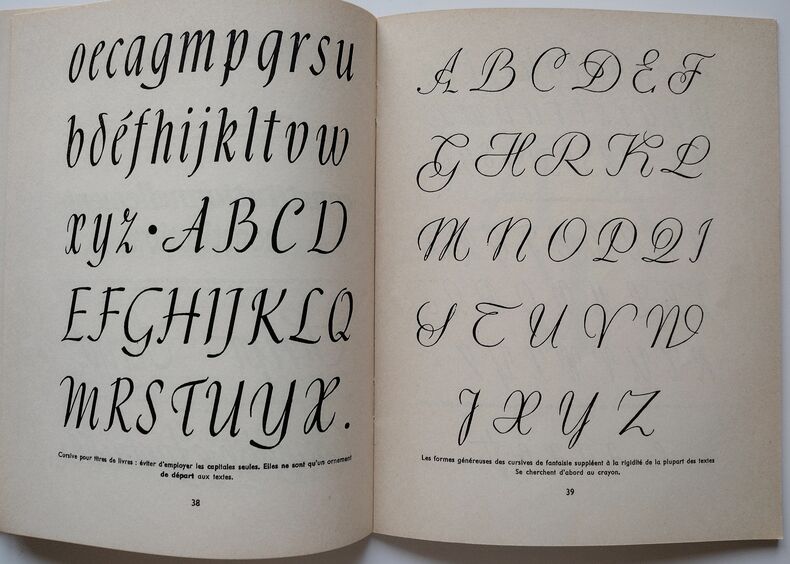 oecagmpqrsu
bdéfhijkltvw
xyz•ABCD
EFGHIJKLQ
MRSTUYX.
Cursive pour titres de livres : éviter d'employer les capitales seules. Elles ne sont qu'un ornement
de départ aux textes.
38
A B C D E F
G H R K L
M N O P Q I
S T U V W
J X Y Z
Les formes généreuses des cursives de fantaisie suppléent à la rigidité de la plupart des textes
Se cherchent d'abord au crayon.
39